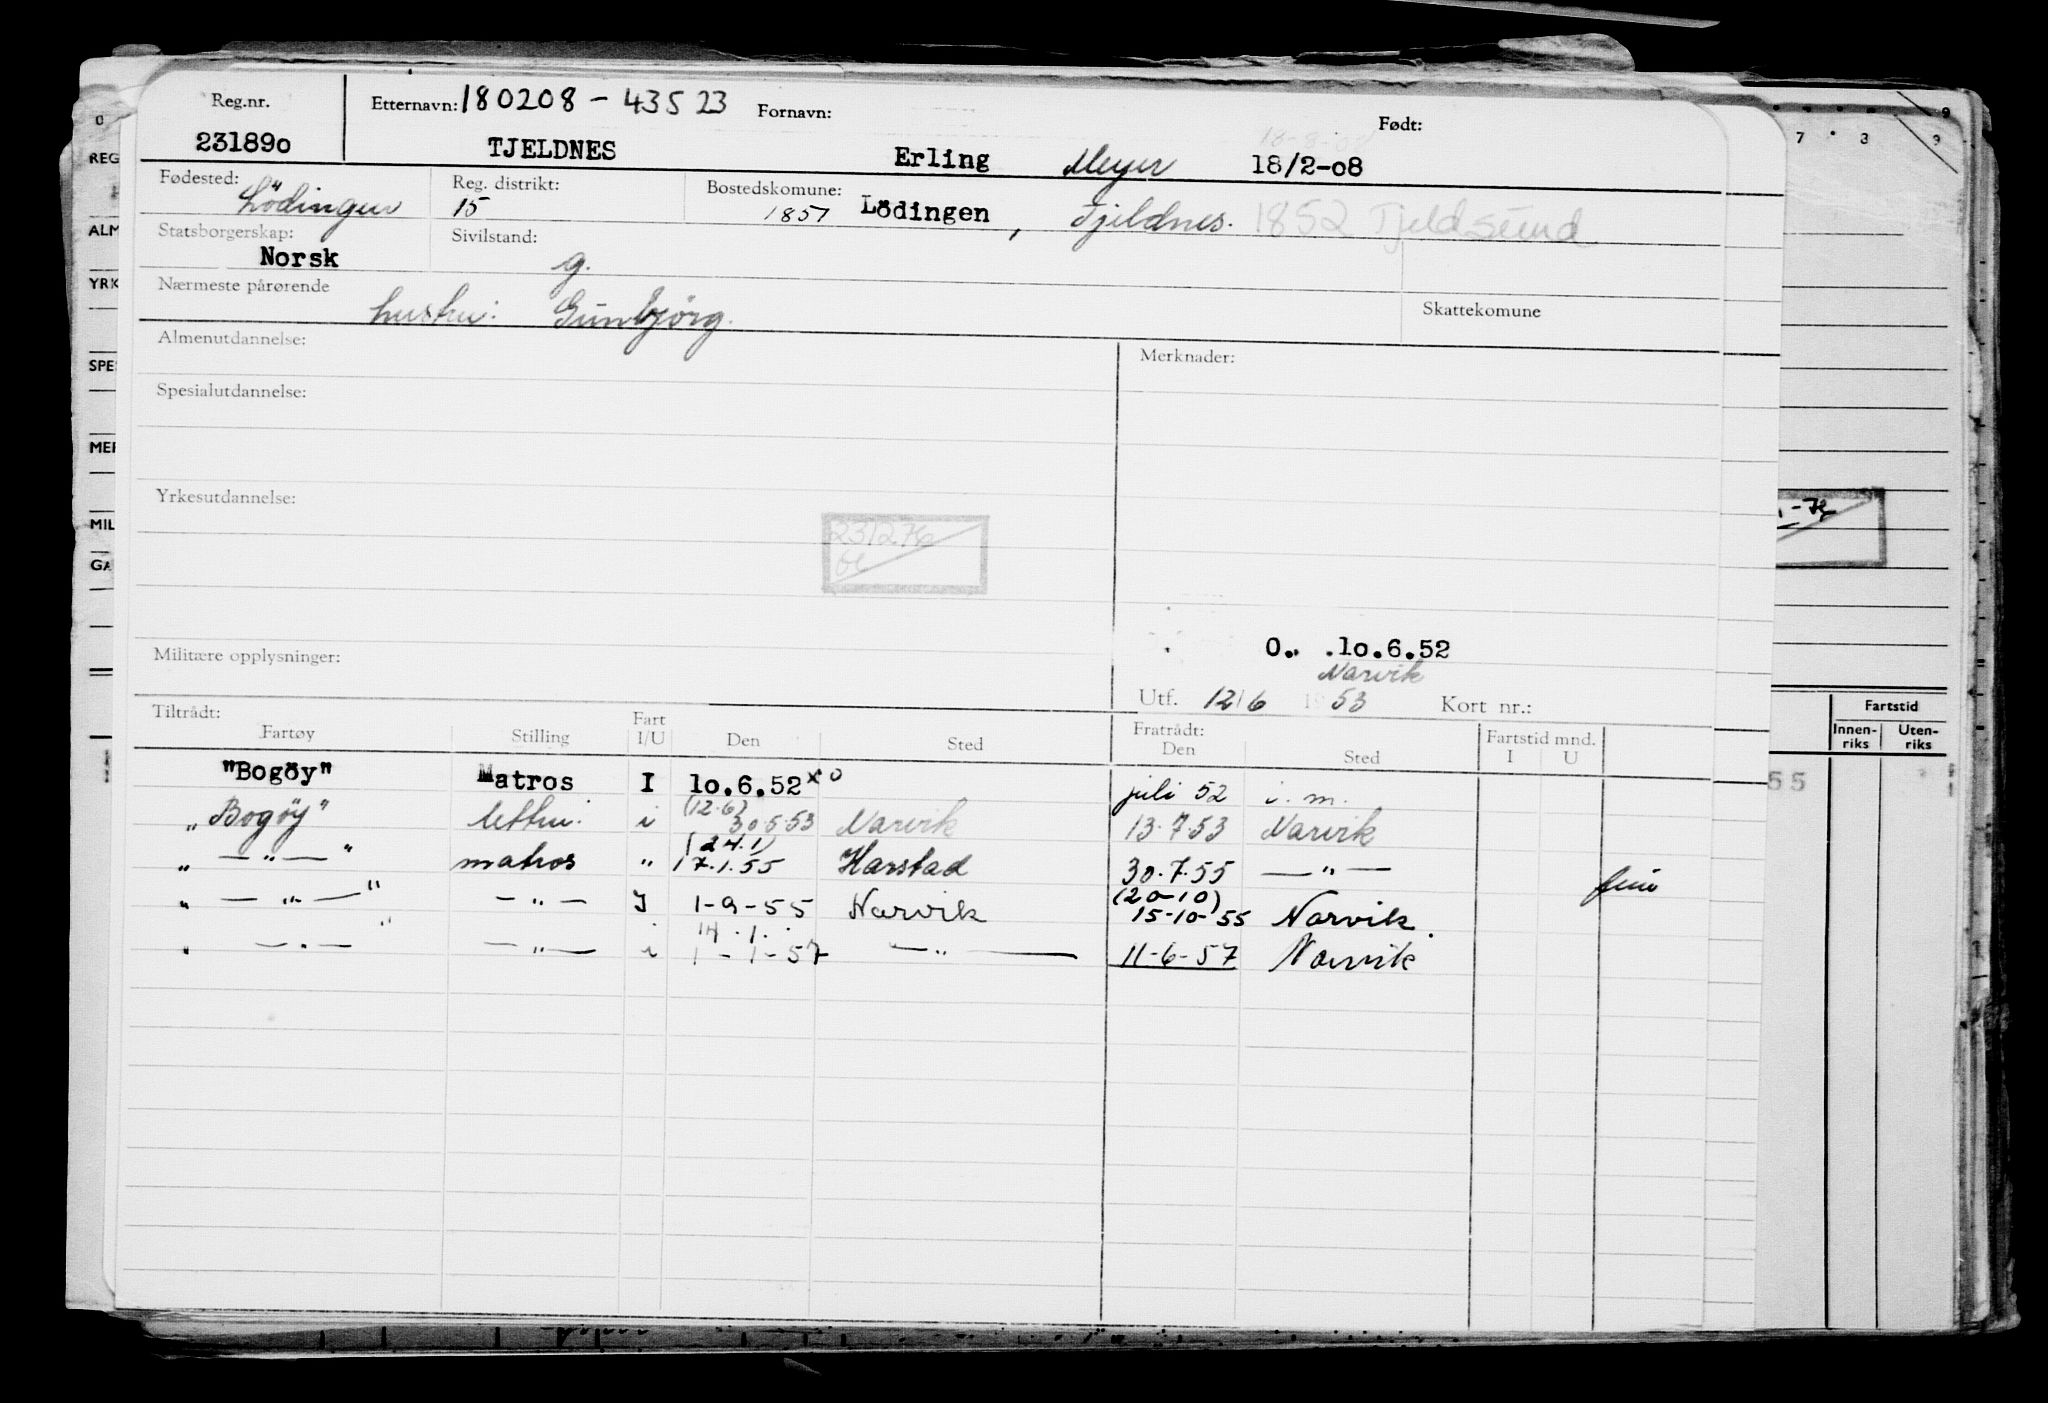 Reg.nr. Etternavn: 180208-43523 Fornavn: Født:
231890 TJELDNES Erling Meyer 18/2-08
Fødested: Lödingen Reg. distrikt: 15 Bostedskomune: 1851 Lödingen, Tjeldnes. 1852 Tjeldsund
Statsborgerskap: Norsk Sivilstand: g.
Nærmeste pårørende hustru: Gunbjörg. Skattekomune
Almenutdannelse: Merknader:
Spesialutdannelse:
Yrkesutdannelse:
O.. .10.6.52
Narvik
Militære opplysninger: Utf. 12/6 1953 Kort nr.:
Tiltrådt: Fratrådt: Fartstid mnd.
Fartøy Stilling Fart I/U Den Sted Den Sted I U
"Bogöy" Matros I 10.6.52 x o juli 52 i. m.
„ Bogöy" i (12.6) 30.5.53 Narvik 13.7.53 Narvik
„ — " — " matros " (24.1) 17.1.55 Harstad 30.7.55 — " —
„ — " — " — " — I 1-9-55 Narvik (20-10) 15-10-55 Narvik.
„ — " — " — " — i 14.1. 1-1-57 — " — 11-6-57 Narvik
REG
ALM
YRK
SPE
MER
MIL
GA
Fartstid
Innen-riks Uten-riks
55
7 8 9